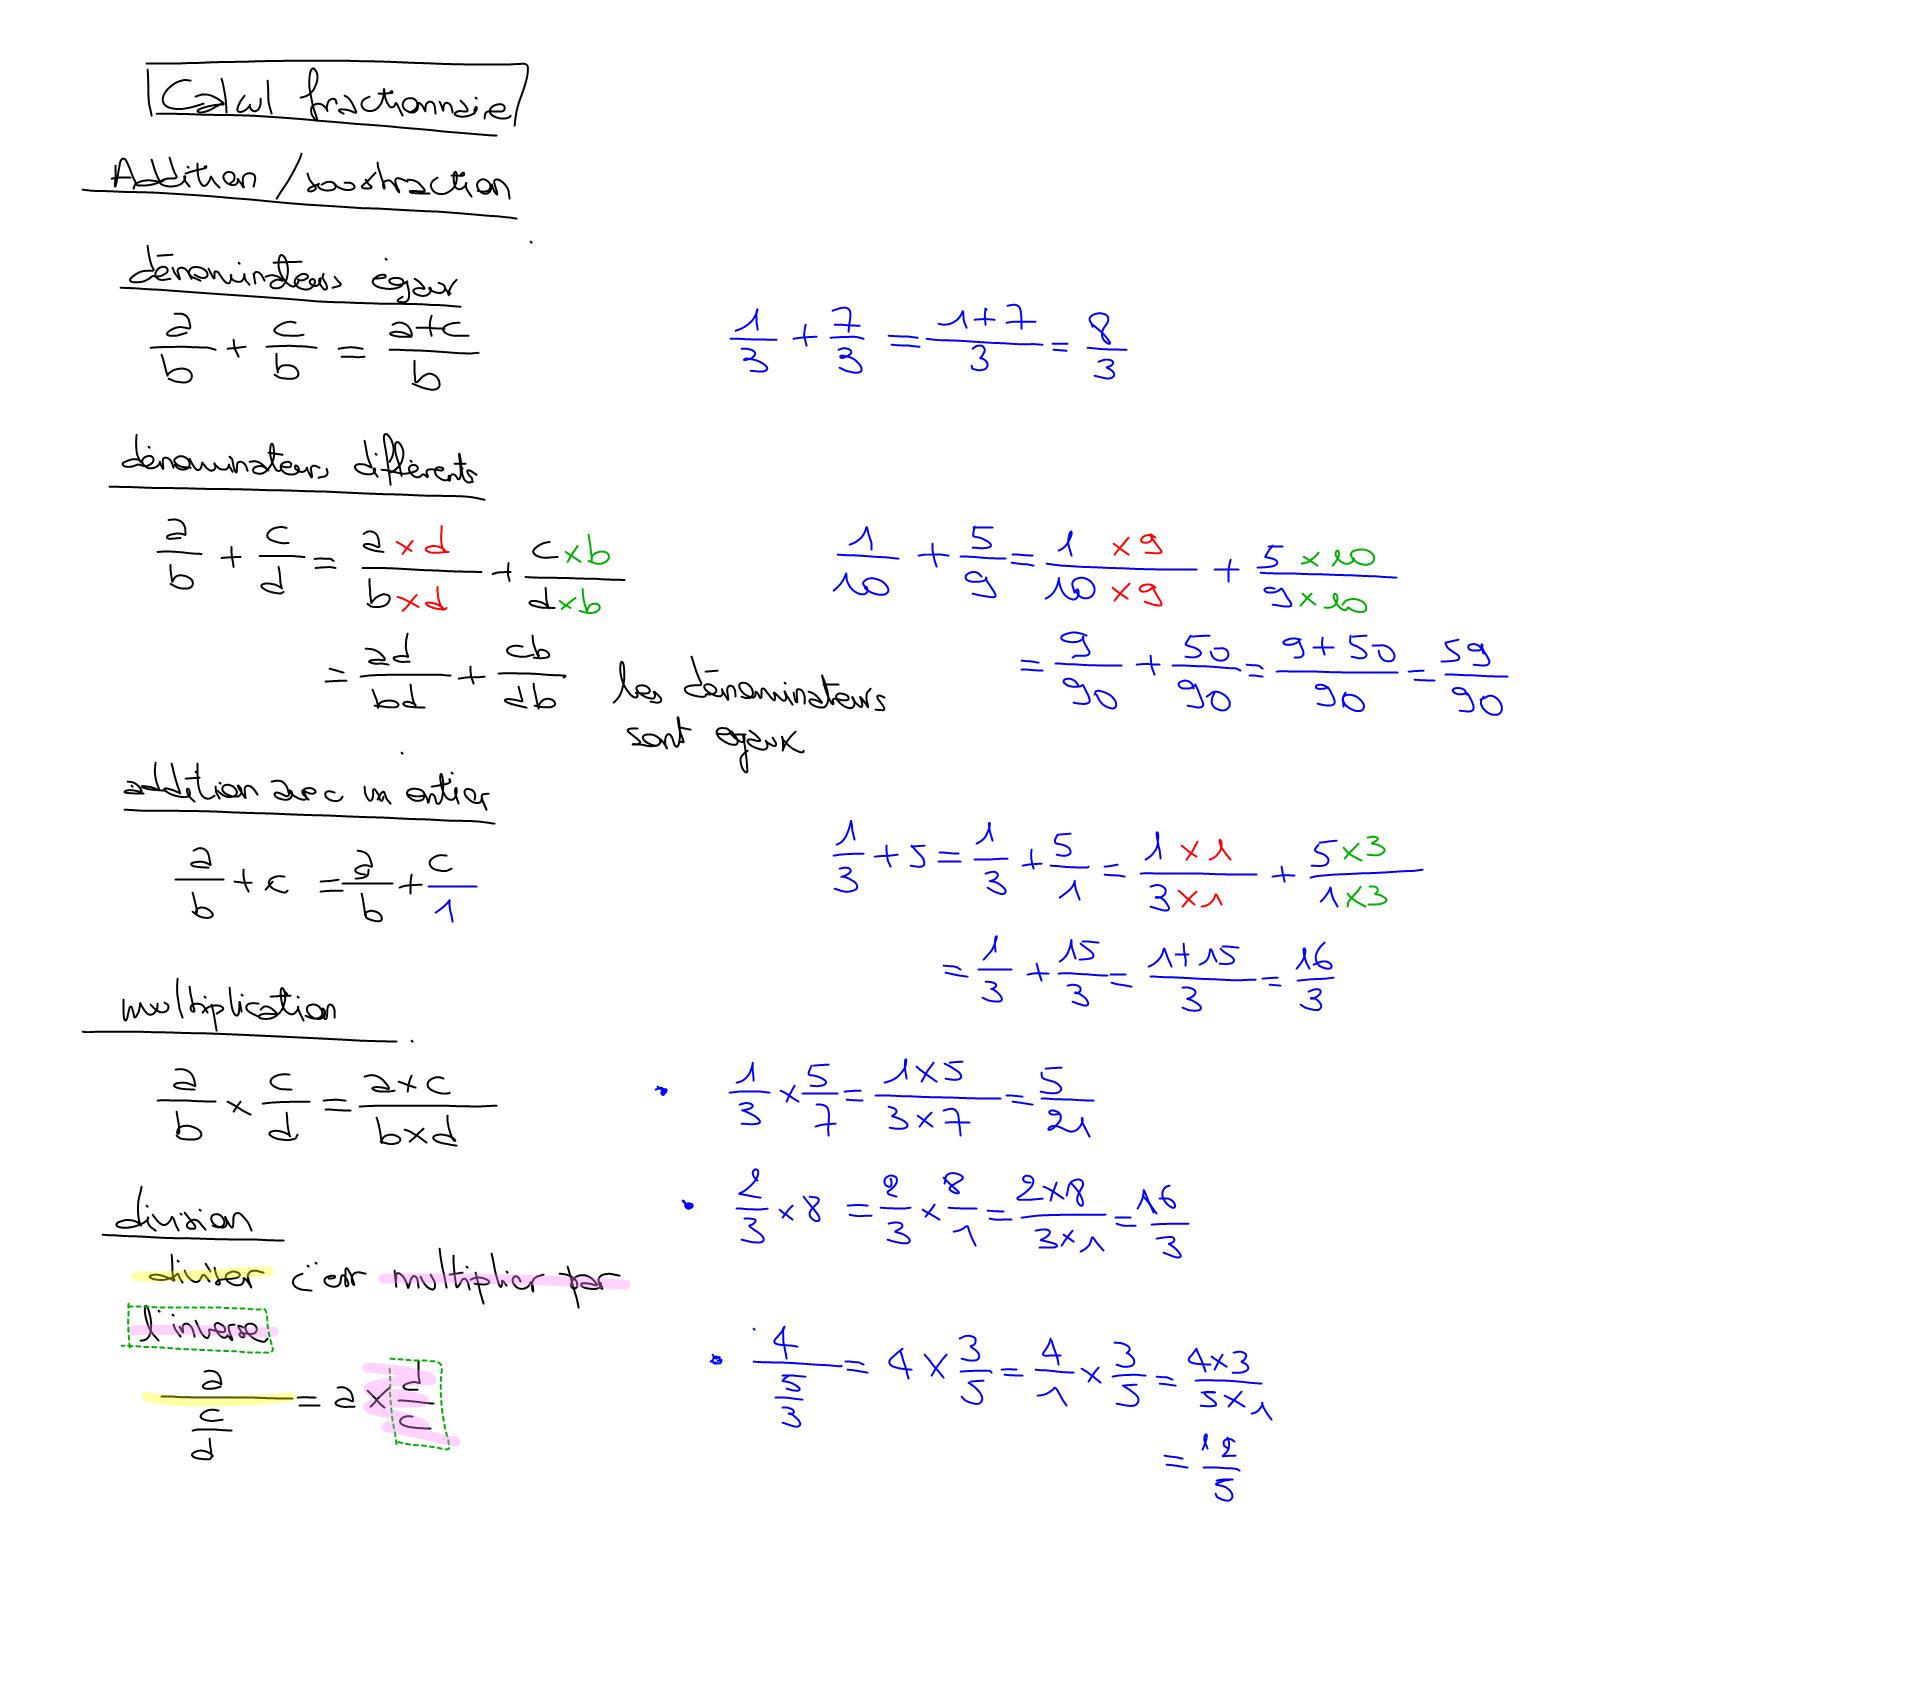 Calcul fractionnaire
Addition / soustraction
dénominateurs égaux
a/b + c/b = (a+c)/b
1/3 + 7/3 = (1+7)/3 = 8/3
dénominateurs différents
a/b + c/d = (a×d)/(b×d) + (c×b)/(d×b)
1/10 + 5/9 = (1×9)/(10×9) + (5×10)/(9×10)
= ad/bd + cb/db les dénominateurs
sont egaux
= 9/90 + 50/90 = (9+50)/90 = 59/90
addition avec un entier
a/b + c = a/b + c/1
1/3 + 5 = 1/3 + 5/1 = (1×1)/(3×1) + (5×3)/(1×3)
= 1/3 + 15/3 = (1+15)/3 = 16/3
multiplication
a/b × c/d = (a×c)/(b×d)
• 1/3 × 5/7 = (1×5)/(3×7) = 5/21
• 2/3 × 8 = 2/3 × 8/1 = (2×8)/(3×1) = 16/3
division
diviser c'est multiplier par
l'inverse
a/(c/d) = a × d/c
• 4/(5/3) = 4 × 3/5 = 4/1 × 3/5 = (4×3)/(5×1)
= 12/5